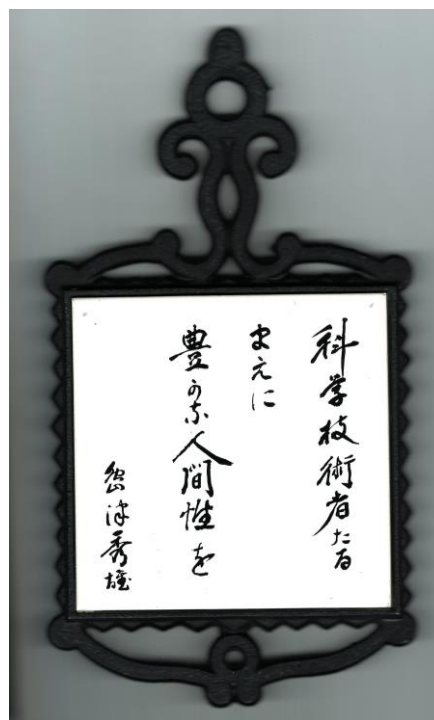 科学技術者たる
まえに
豊かな人間性を
島津秀雄